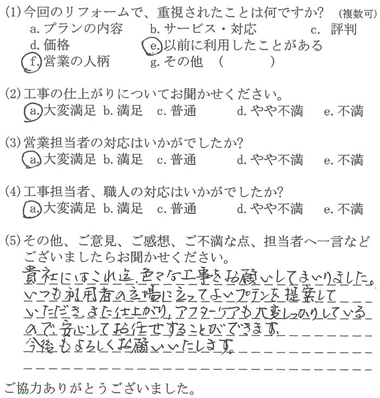 (1)今回のリフォームで、重視されたことは何ですか? (複数可)
a. プランの内容 b. サービス・対応 c. 評判
d. 価格 e. 以前に利用したことがある
f. 営業の人柄 g. その他 ( )
(2)工事の仕上がりについてお聞かせください。
a. 大変満足 b. 満足 c. 普通 d. やや不満 e. 不満
(3)営業担当者の対応はいかがでしたか?
a. 大変満足 b. 満足 c. 普通 d. やや不満 e. 不満
(4)工事担当者、職人の対応はいかがでしたか?
a. 大変満足 b. 満足 c. 普通 d. やや不満 e. 不満
(5)その他、ご意見、ご感想、ご不満な点、担当者へ一言など
ございましたらお聞かせください。
貴社にはこれ迄、色々な工事をお願いしてまいりました。
いつも利用者の立場に立ってよいプランを提案して
いただき、また仕上がり、アフターケアも大変しっかりしている
ので安心してお任せすることができます。
今後もよろしくお願いいたします。
ご協力ありがとうございました。